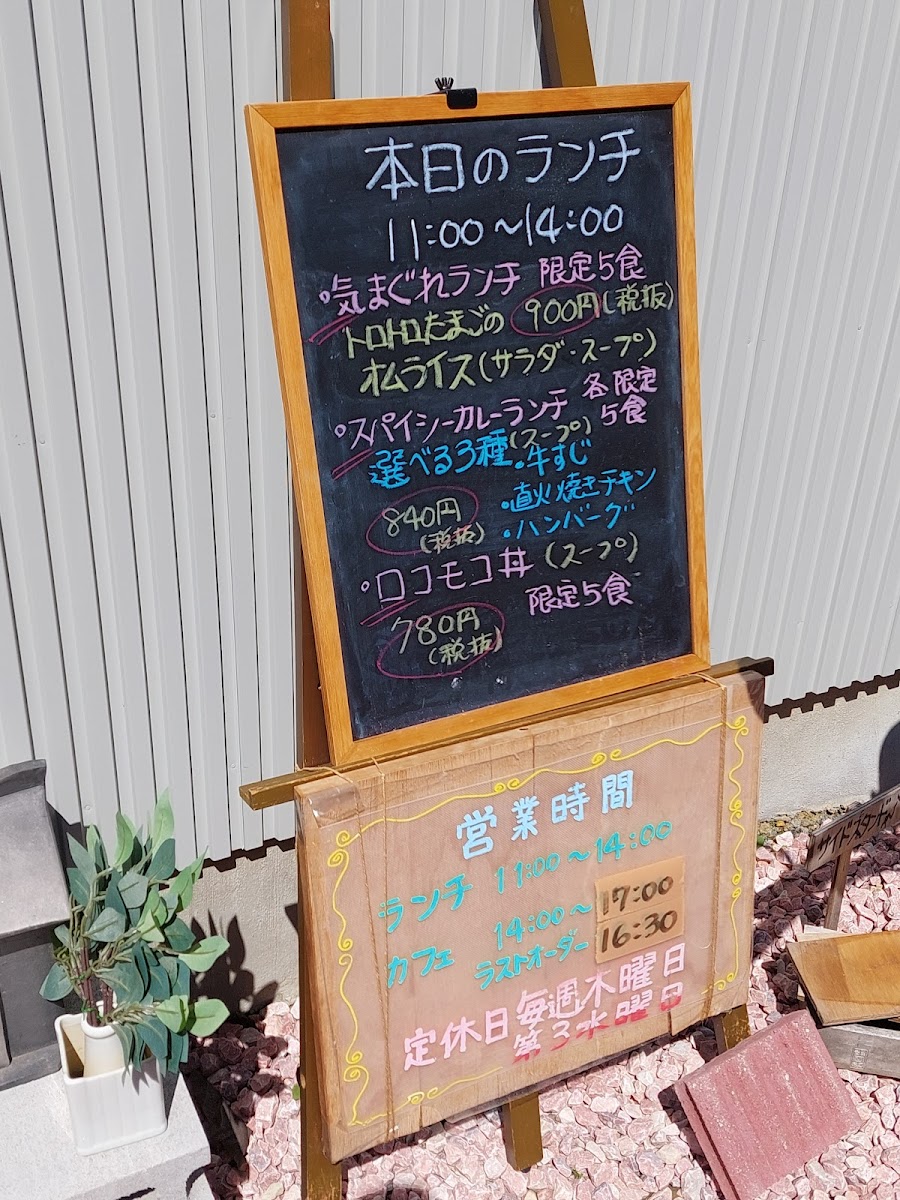 本日のランチ
11:00～14:00
・気まぐれランチ 限定5食
トロトロたまごの 900円(税抜)
オムライス(サラダ・スープ)
・スパイシーカレーランチ 各限定
5食
選べる3種(スープ)・牛すじ
・直火焼きチキン
840円
(税抜) ・ハンバーグ
・ロコモコ丼 (スープ)
780円 限定5食
(税抜)
営業時間
ランチ 11:00～14:00
カフェ 14:00～17:00
ラストオーダー 16:30
定休日 毎週木曜日
第3水曜日
サイドスタンド